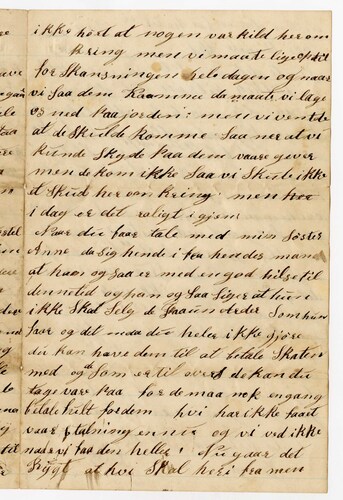 ikke hört at nogen var kild her om
kring men vi maate lige
for Skansningen hele dagen og naar
vi saa dem Kaamme da maate vi læge
os ned paa jorden: men vi vente
at de skulde komme Saa ner at vi
kunde Skyde paa dem vaare gever
men de kom ikke Saa vi Skulde ikke
et Skud her om kring men
i dag er det roligt igjen
Naar du faar tale med min Söster
Anne da Sig hende i fra hendes mand
at haan og saa er med en god hilse til
den sted og han og Saa Siger at hun
ikke Skal Selg de Som hun
haar og det maa du heler ikke Sjöre
du kan have dem til at betale Skaten
med og Som er til overs de kan du
tage vare paa for de maa nok en gang
betale fult for dem hvi har ikke faaet
vaar betalning en nu og vi ved ikke
naar vi faa den heller! Nu gaar det
Rygt at hvi Skal her i fra men